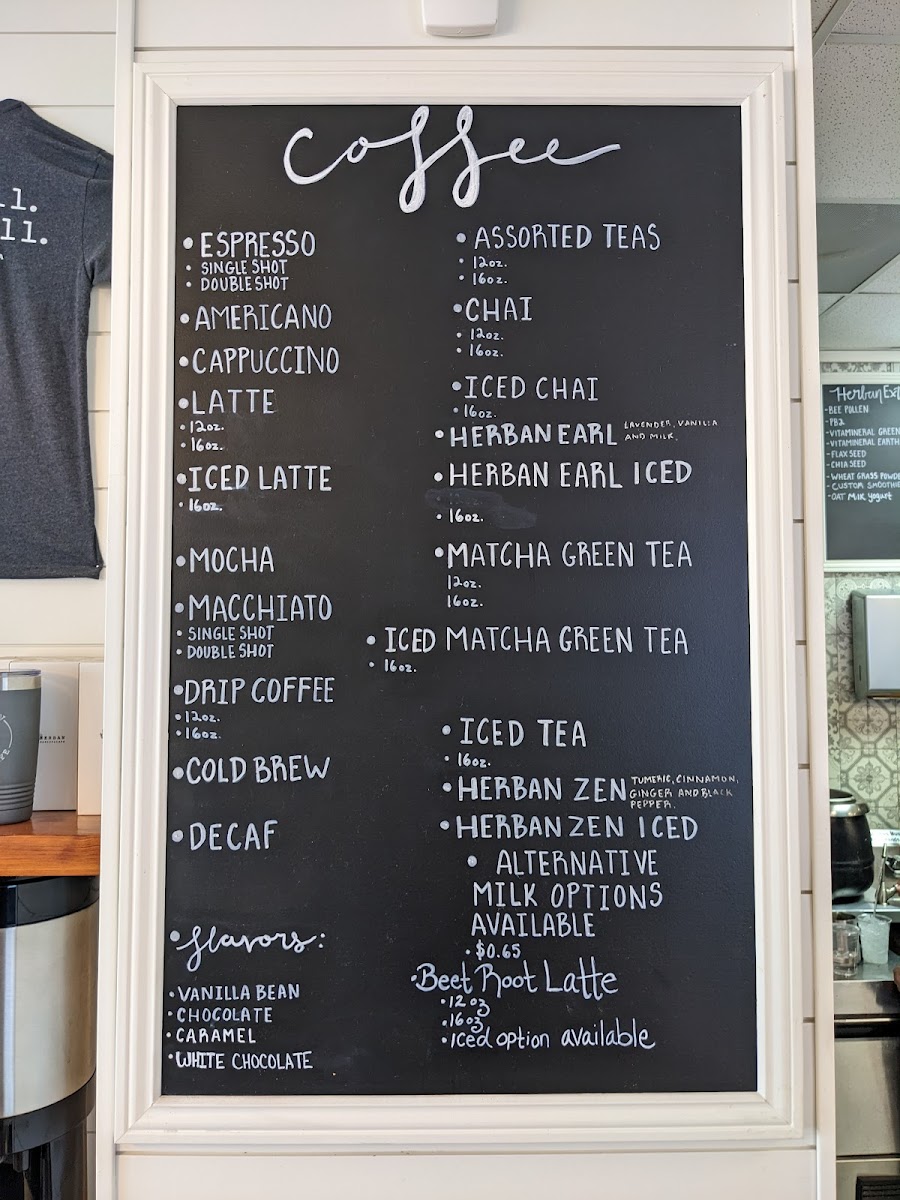 Coffee
• ESPRESSO
• SINGLE SHOT
• DOUBLE SHOT
• AMERICANO
• CAPPUCCINO
• LATTE
• 12oz.
• 16oz.
• ICED LATTE
• 16oz.
• MOCHA
• MACCHIATO
• SINGLE SHOT
• DOUBLE SHOT
• DRIP COFFEE
• 12oz.
• 16oz.
• COLD BREW
• DECAF
• flavors:
• VANILLA BEAN
• CHOCOLATE
• CARAMEL
• WHITE CHOCOLATE
• ASSORTED TEAS
• 12oz.
• 16oz.
• CHAI
• 12oz.
• 16oz.
• ICED CHAI
• 16oz.
• HERBAN EARL LAVENDER, VANILLA
AND MILK.
• HERBAN EARL ICED
• 16oz.
• MATCHA GREEN TEA
12oz.
16oz.
• ICED MATCHA GREEN TEA
• 16oz.
• ICED TEA
• 16oz.
• HERBAN ZEN TUMERIC, CINNAMON,
GINGER AND BLACK
PEPPER.
• HERBAN ZEN ICED
• ALTERNATIVE
MILK OPTIONS
AVAILABLE
• $0.65
• Beet Root Latte
• 12 oz
• 16oz
• Iced option available
Herban Ext
- BEE POLLEN
- PB2
- VITAMINERAL GREEN
- VITAMINERAL EARTH
- FLAX SEED
- CHIA SEED
- WHEAT GRASS POWDE
- CUSTOM SMOOTHIE
- OAT MILK yogurt